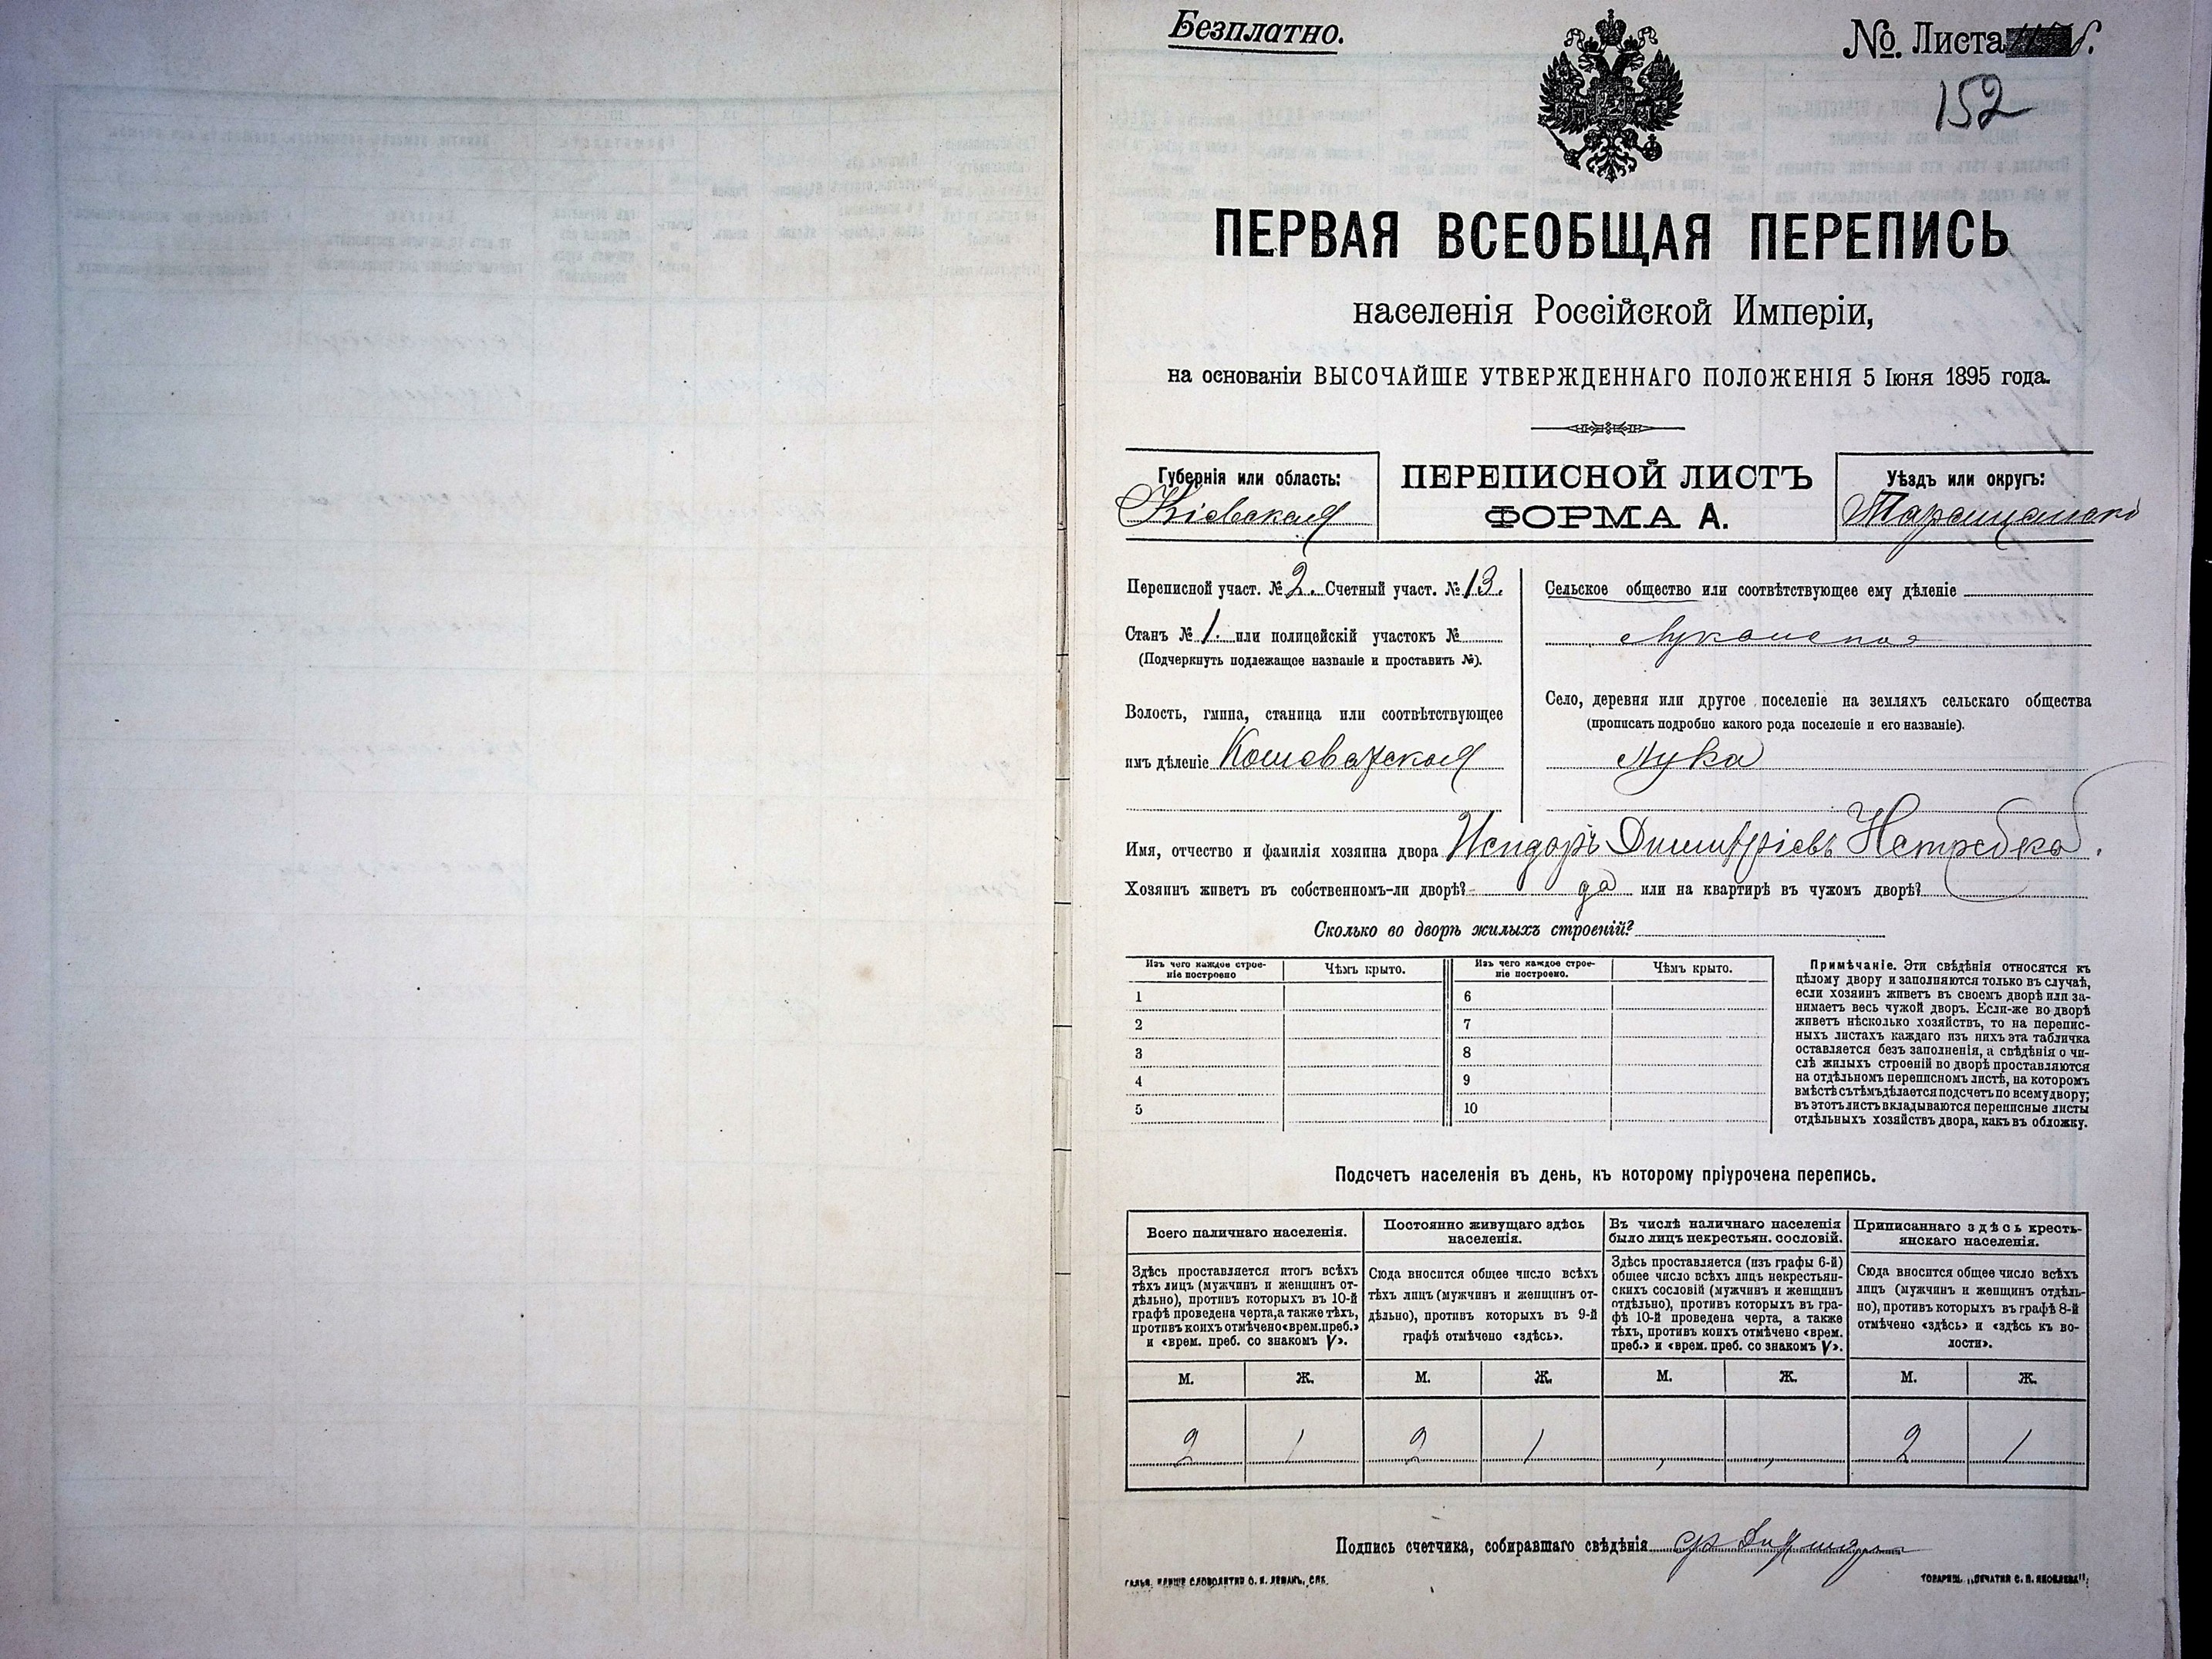 Безплатно.
№. Листа
152
ПЕРВАЯ ВСЕОБЩАЯ ПЕРЕПИСЬ
населенія Россійской Имперіи,
на основаніи ВЫСОЧАЙШЕ УТВЕРЖДЕННАГО ПОЛОЖЕНІЯ 5 Іюня 1895 года.
Губернія или область:
Кіевская
ПЕРЕПИСНОЙ ЛИСТЪ
ФОРМА А.
Уѣздъ или округъ:
Таращанскі
Переписной участ. № 2. Счетный участ. № 13.
Станъ № 1. или полицейскій участокъ №
(Подчеркнуть подлежащее названіе и проставить №).
Волость, гмина, станица или соотвѣтствующее
имъ дѣленіе Кошоватская
Сельское общество или соотвѣтствующее ему дѣленіе
Лукянское
Село, деревня или другое поселеніе на земляхъ сельскаго общества
(прописать подробно какого рода поселеніе и его названіе).
Лука
Имя, отчество и фамилія хозяина двора Исидоръ Димитріевъ Нетребка.
Хозяинъ живетъ въ собственномъ-ли дворѣ? да или на квартирѣ въ чужомъ дворѣ?
Сколько во дворѣ жилыхъ строеній?
Изъ чего каждое строе-
ніе построено
Чѣмъ крыто.
Изъ чего каждое строе-
ніе построено.
Чѣмъ крыто.
1
6
2
7
3
8
4
9
5
10
Примѣчаніе. Эти свѣдѣнія относятся къ
цѣлому двору и заполняются только въ случаѣ,
если хозяинъ живетъ въ своемъ дворѣ или за-
нимаетъ весь чужой дворъ. Если-же во дворѣ
живетъ нѣсколько хозяйствъ, то на перепис-
ныхъ листахъ каждаго изъ нихъ эта табличка
оставляется безъ заполненія, а свѣдѣнія о чи-
слѣ жилыхъ строеній во дворѣ проставляются
на отдѣльномъ переписномъ листѣ, на которомъ
вмѣстѣ съ тѣмъ дѣлается подсчетъ по всему двору;
въ этотъ листъ вкладываются переписные листы
отдѣльныхъ хозяйствъ двора, какъ въ обложку.
Подсчетъ населенія въ день, къ которому пріурочена перепись.
Всего наличнаго населенія.
Здѣсь проставляется итогъ всѣхъ
тѣхъ лицъ (мужчинъ и женщинъ от-
дѣльно), противъ которыхъ въ 10-й
графѣ проведена черта, а также тѣхъ,
противъ коихъ отмѣчено «врем. преб.»
и «врем. преб. со знакомъ V».
Постоянно живущаго здѣсь
населенія.
Сюда вносится общее число всѣхъ
тѣхъ лицъ (мужчинъ и женщинъ от-
дѣльно), противъ которыхъ въ 9-й
графѣ отмѣчено «здѣсь».
Въ числѣ наличнаго населенія
было лицъ некрестьян. сословій.
Здѣсь проставляется (изъ графы 6-й)
общее число всѣхъ лицъ некрестьян-
скихъ сословій (мужчинъ и женщинъ
отдѣльно), противъ которыхъ въ гра-
фѣ 10-й проведена черта, а также
тѣхъ, противъ коихъ отмѣчено «врем.
преб.» и «врем. преб. со знакомъ V».
Приписаннаго здѣсь кресть-
янскаго населенія.
Сюда вносится общее число всѣхъ
лицъ (мужчинъ и женщинъ отдѣль-
но), противъ которыхъ въ графѣ 8-й
отмѣчено «здѣсь» и «здѣсь къ во-
лости».
М. Ж. М. Ж. М. Ж. М. Ж.
2 1 2 1 2 1
Подпись счетчика, собиравшаго свѣдѣнія
ГАЛЬВ. КЛИШЕ СЛОВОЛИТНИ О. И. ЛЕМАНЪ, СПБ.
ТОВАРИЩ. „ПЕЧАТНЯ С. П. ЯКОВЛЕВА“.